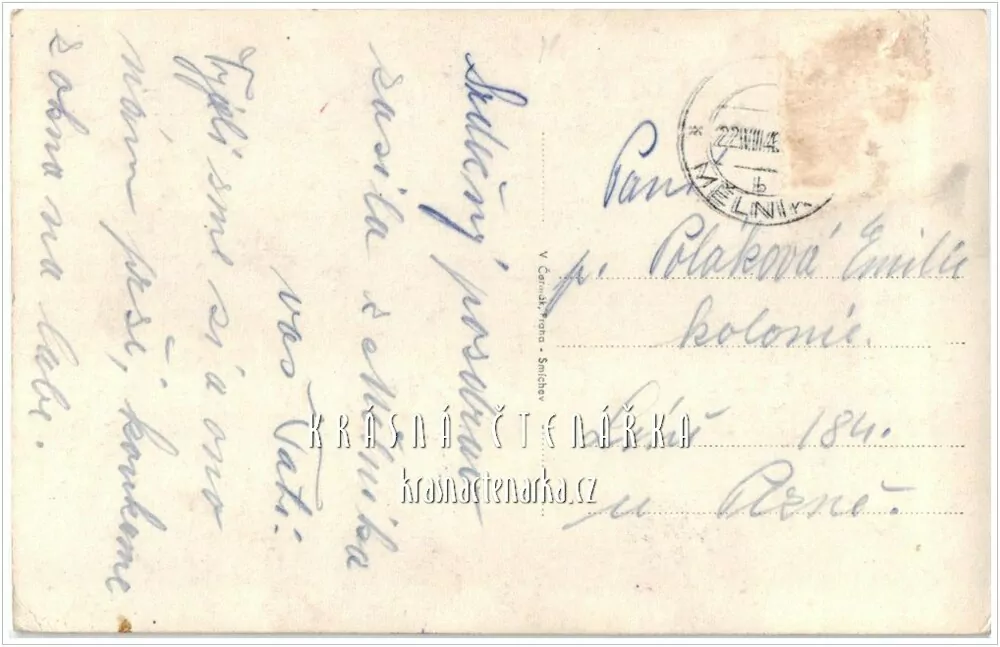 Srdečný posdrav
zasíla z Mělníka
vas Taťi.
Vyjeli sme si a ono
nám prše, koukame
z okna na labe.
V. Čermák, Praha - Smíchov
22.VIII.4
b
MĚLNÍK
Paní
p. Poláková Emilie
kolonie.
184.
u Plzně.
KRÁSNÁ ČTENÁŘKA
krasnactenarka.cz